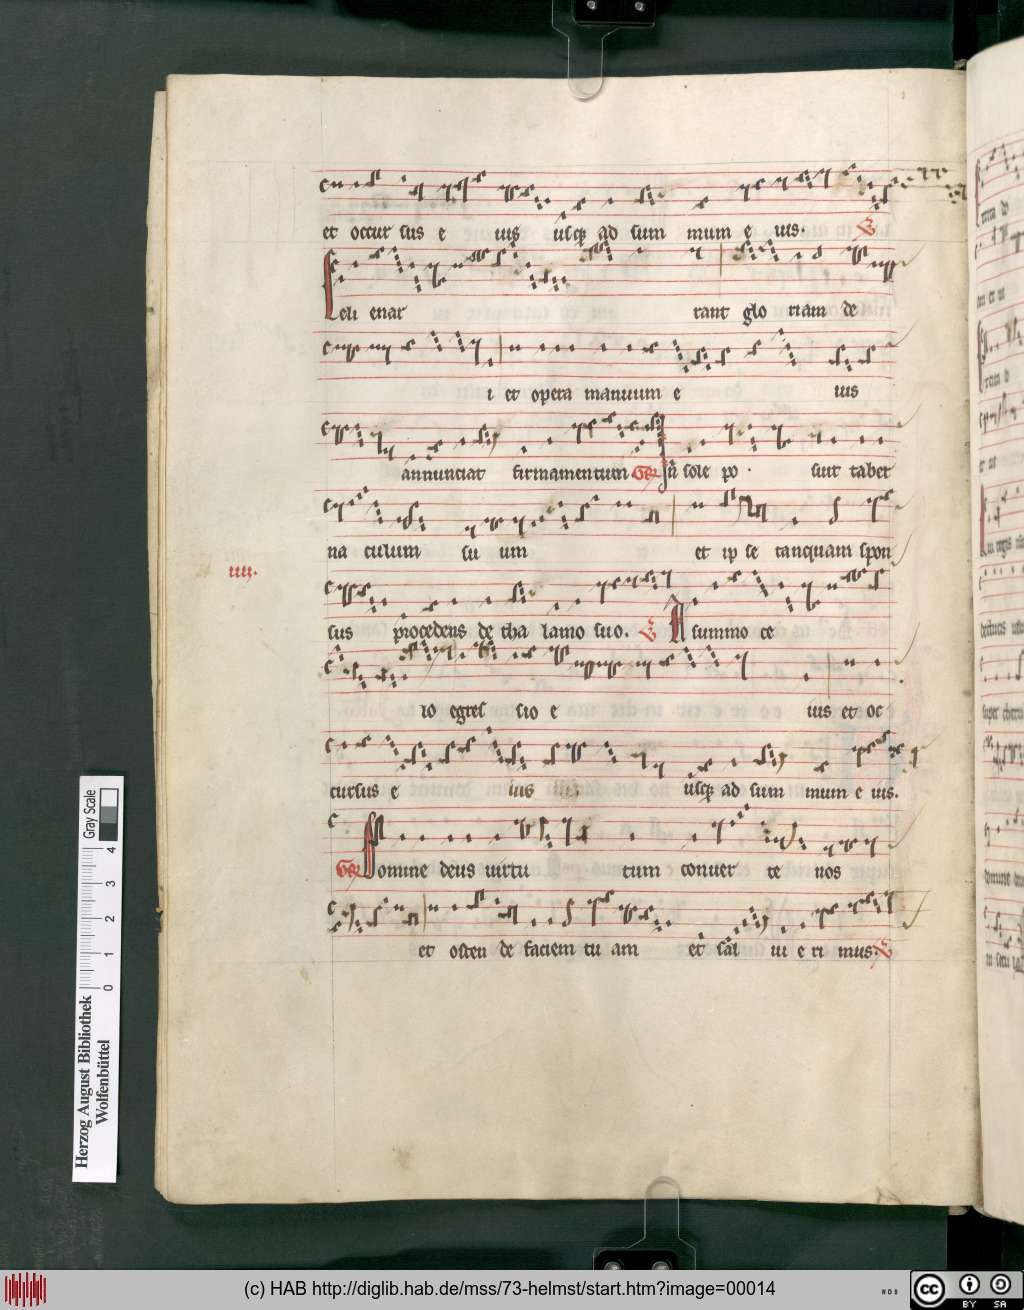 et occur sus e ius usq; ad sum mum e ius. V
Celi enar rant glo riam de
i et opera manuum e ius
annunciat firmamentum Gr In sole po suit taber
na culum su um et ip se tanquam spon
iiij.
sus procedens de tha lamo suo. V A summo ce
lo egres sio e ius et oc
cursus e ius usq; ad sum mum e ius.
Gr Domine deus uirtu tum conuer te nos
et osten de faciem tu am et sal ui e ri mus. V
Gray Scale
0 1 2 3 4
Herzog August Bibliothek
Wolfenbüttel
(c) HAB http://diglib.hab.de/mss/73-helmst/start.htm?image=00014
cc BY SA